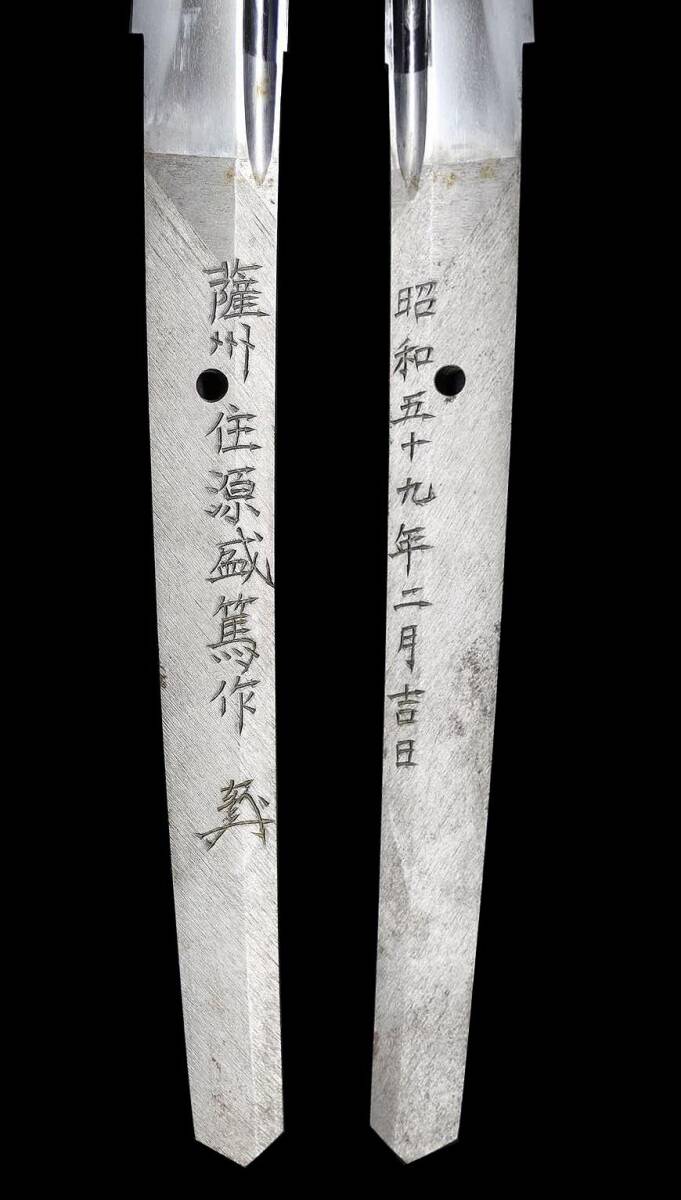 薩州住源盛篤作
昭和五十九年二月吉日